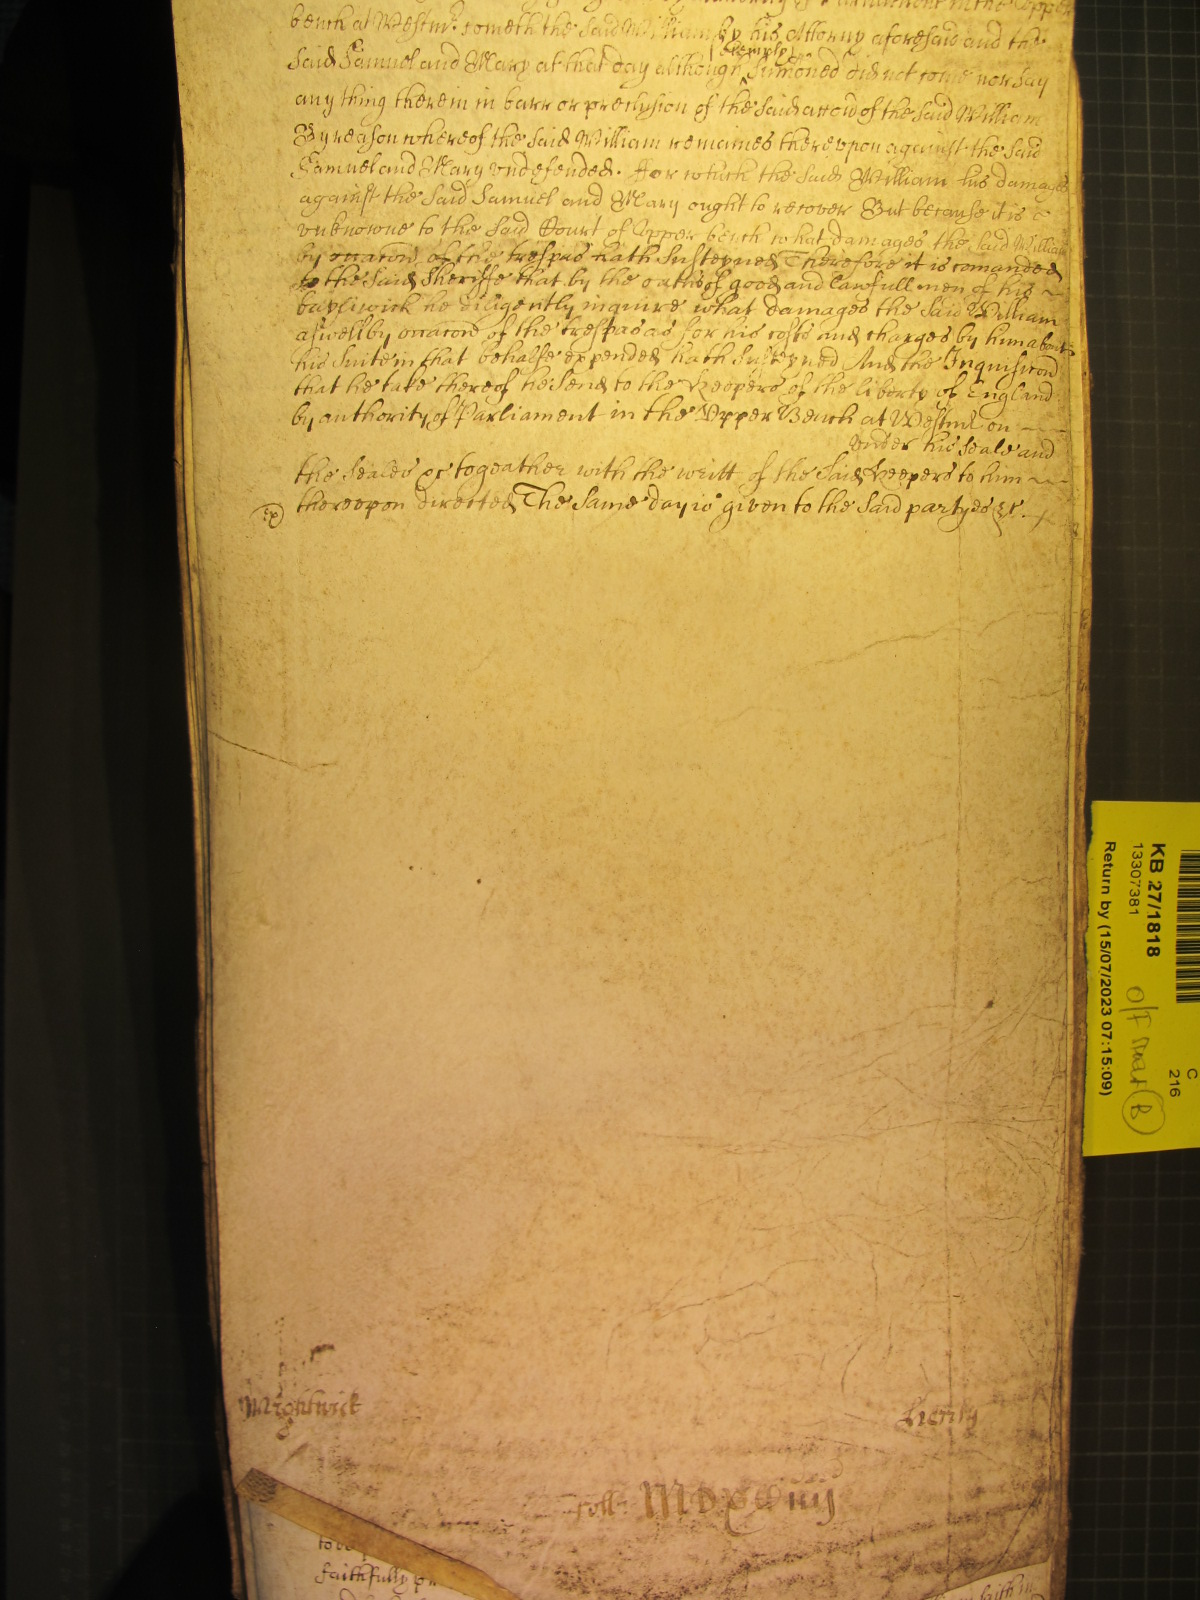 bench at Westmr. cometh the said William by his Attorny aforesaid and the
solemply
said Samuel and Mary at that day although sumoned did not come nor say
any thing therein in barr or preclusion of the said accon of the said William
By reason whereof the said William remaines thereupon against the said
Samuel and Mary vndefended. For which the said William his damages
against the said Samuel and Mary ought to recover But because it is
vnknowne to the said Court of Vpper bench what damages the said William
by occacon of the trespas hath susteyned Therefore it is comanded
to the said Sheriffe that by the oathes of good and lawfull men of his
bayliwick he diligently inquire what damages the said William
aswell by occacon of the trespas as for his costs and charges by him about
his suite in that behalfe expended hath susteyned And the Inquisicon
that he take thereof he send to the Keepers of the liberty of England
by authority of Parliament in the Vpper Bench at Westmr on
vnder his seale and
the seales &c togeather with the writt of the said Keepers to him
thereupon directed The same day is given to the said partyes &c.
Wightwick
roll
faithfully
KB 27/1818
13307381
Return by (15/07/2023 07:15:09)
C
216
O/F
B